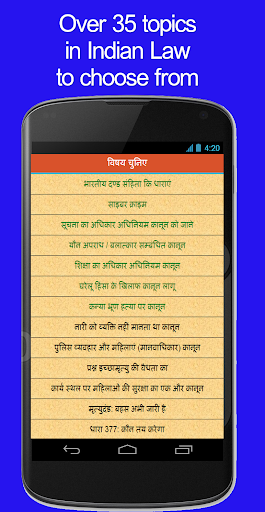 Over 35 topics
in Indian Law
to choose from
4:20
विषय चुनिए
भारतीय दण्ड संहिता कि धाराएं
साइबर क्राइम
सूचना का अधिकार अधिनियम कानून को जाने
यौन अपराध / बलात्कार सम्बंधित कानून
शिक्षा का अधिकार अधिनियम कानून
घरेलू हिंसा के खिलाफ कानून लागू
कन्या भ्रूण हत्या पर कानून
नारी को व्यक्ति नही मानता था कानून
पुलिस व्यवहार और महिलाएं (मानवाधिकार) कानून
प्रश्न इच्छामृत्यु की वैधता का
कार्य स्थल पर महिलाओं की सुरक्षा का एक और कानून
मृत्युदंड: बहस अभी जारी है
धारा 377: कौन तय करेगा